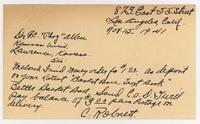 872 East 55 Street
Los Angeles Calif
Nov. 15 - 1941
Dr. F.C. "Phog" Allen
Kansas Univ.
Lawrence, Kansas.
Sir:
Enclosed find Money order for $1.00 as deposit
on your latest Basket Ball Text Book -
Better Basket Ball, Send C.O.D. I will
Pay balance of $3.00 plus Postage on
delivery.
C. Robnett